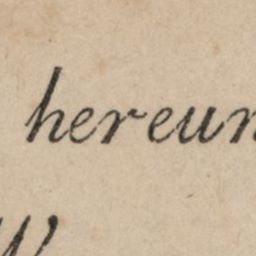 hereun
W